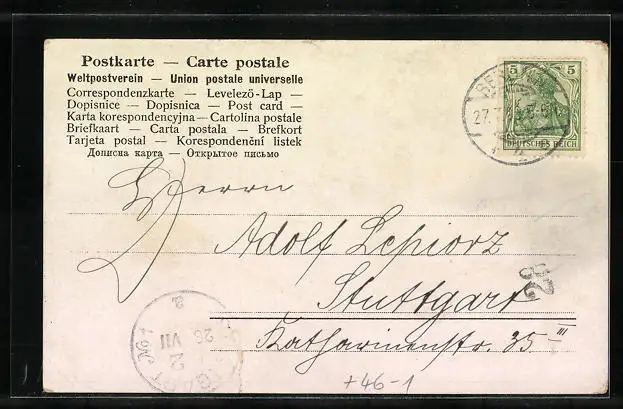 Postkarte — Carte postale
Weltpostverein — Union postale universelle
Correspondenzkarte — Levelező-Lap —
Dopisnice — Dopisnica — Post card —
Karta korespondencyjna — Cartolina postale
Briefkaart — Carta postala — Brefkort
Tarjeta postal — Korespondenční listek
Дописна карта — Открытое письмо
5 5
DEUTSCHES REICH
27.
Herrn
Adolf Lepiorz
Stuttgart
28
Katharinenstr. 35 III
STUTTGART
VII
+46-1